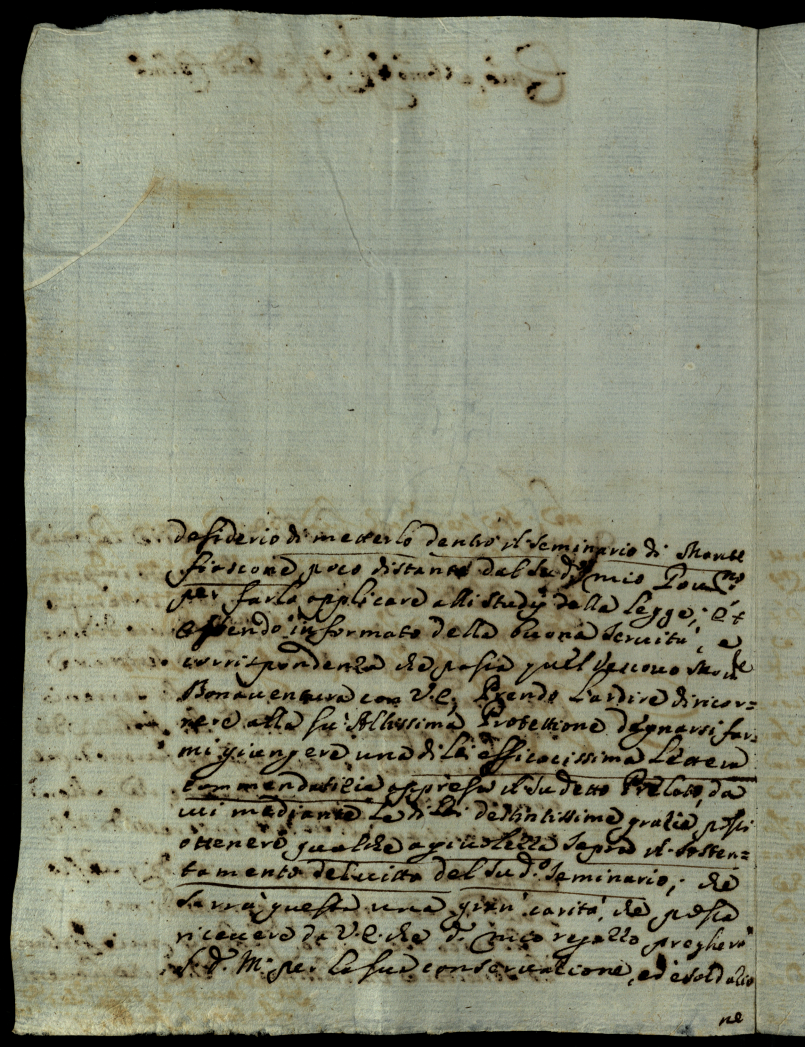 desiderio di metterlo dentro il Seminario di Monte
fiascone, poco distante dal Sud.º mio
per farlo applicare alli Studij della Legge; et
essendo informato della buona Servitù, e
corrispondenza che passa quel Vescovo
Bonaventura con V.E. Prendo l'ardire di ricor=
rere alla su' Altissima Protettione degnarsi far=
mi giungere una di Lei efficacissima Lettera
commendatitia appresso il Sudetto Prelato, da
cui mediante le di Lei destintissime gratie possi
ottenere qualche agevolezza sopra il Sosten=
tamento del vitto del Sud.º Seminario; che
Sarrà questa una gran' carità, che possa
ricevere da V.E. che d' preghero
S. D. M. per la sua conservatione, ed esaldatio
ne